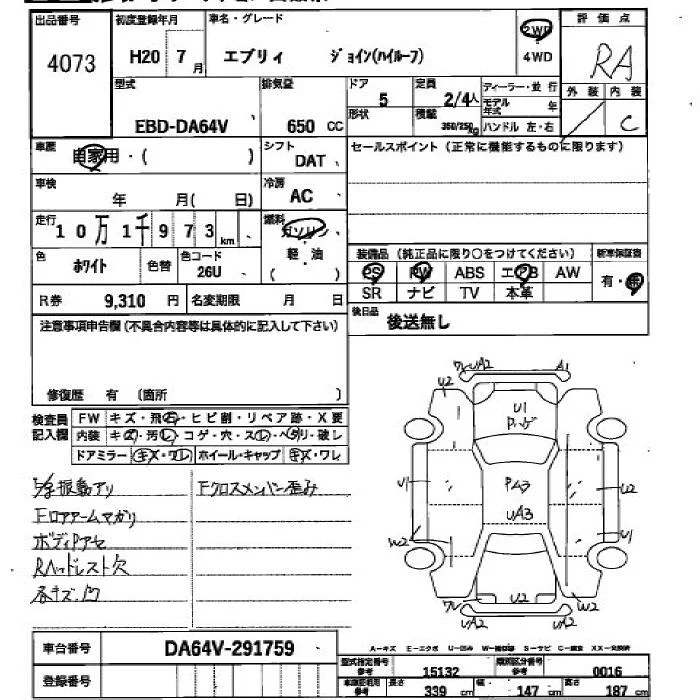 出品番号 初度登録年月 車名・グレード 2WD 評価点
4073 H20 7月 エブリィ ジョイン(ハイルーフ) 4WD RA
型式 排気量 ドア 定員 ディーラー・並行 外装 内装
EBD-DA64V 650 CC 5 2/4人 モデル年式 年
形状 積載 350/250kg ハンドル 左・右 C
車歴 自家用・( ) シフト DAT セールスポイント (正常に機能するものに限ります)
車検 年 月( 日) 冷房 AC
走行 10万1千973km 燃料 ガソリン
軽・油
( )
色 ホワイト 色替 色コード 26U
装備品 (純正品に限り○をつけてください) 新車保証書
PS PW ABS エアB AW 有・無
SR ナビ TV 本革
R券 9,310 円 名変期限 月 日
後日品 後送無し
注意事項申告欄 (不具合内容等は具体的に記入して下さい)
修復歴 有 (箇所 )
検査員記入欄 FW キズ・飛石・ヒビ割・リペア跡・X要
内装 キズ・汚レ・コゲ・穴・スレ・ヘタリ・破し
ドアミラー キズ・ワレ ホイール・キャップ キズ・ワレ
振動アリ Fクロスメンバー歪み
Fロアアームマガリ
ボディサビ
Rヘッドレスト欠
各キズ・凹
ワレ UA2 A1
U2 U2
U1
U1 PA3 U2
UA3
W2 U1
ワレ U2 W2
UA2 UA2
A-キズ E-エクボ U-凹み W-補修跡 S-サビ C-腐食 XX-交換済
車台番号 DA64V-291759
登録番号
型式指定番号 参考 15132 類別区分番号 参考 0016
参考 長さ 339 cm 幅 147 cm 高さ 187 cm